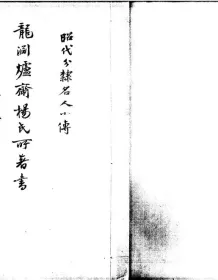 昭代分隸名人小傳
龍淵爐齋楊氏所著書